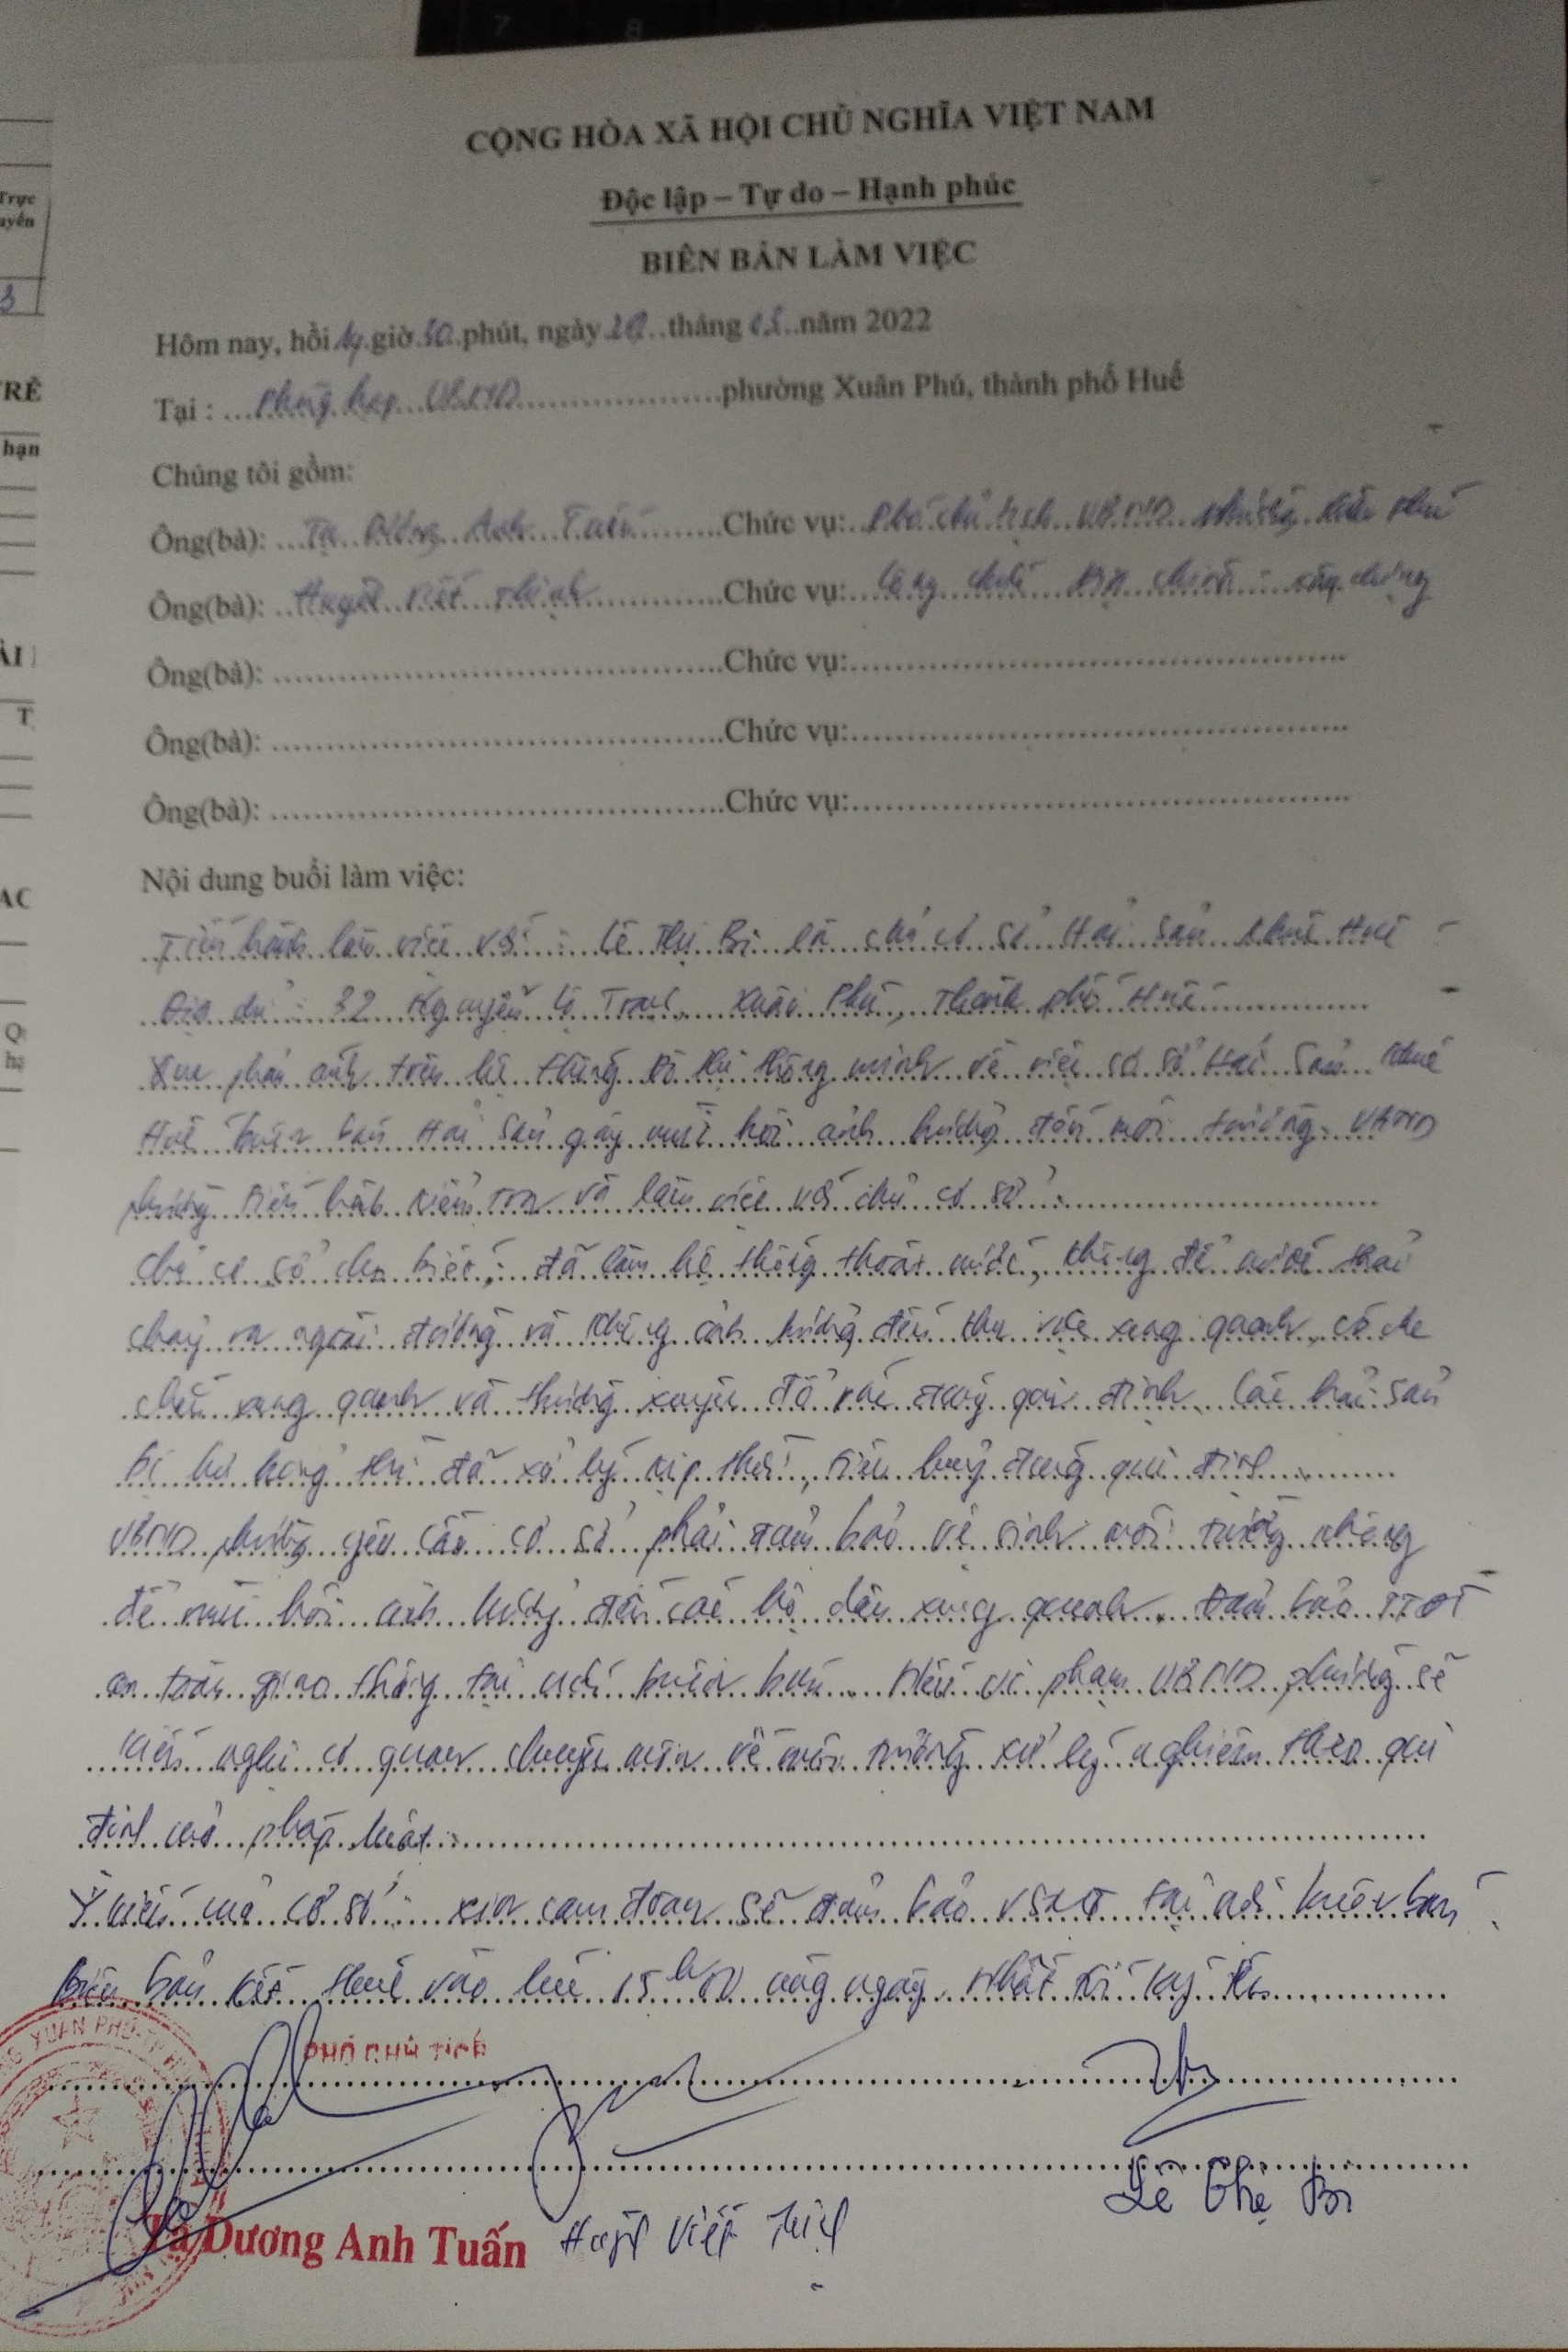 Trực
uyến
3
TRẺ
hạn
CỘNG HÒA XÃ HỘI CHỦ NGHĨA VIỆT NAM
Độc lập – Tự do – Hạnh phúc
BIÊN BẢN LÀM VIỆC
Hôm nay, hồi 14 giờ 30 phút, ngày tháng năm 2022
Tại : Phòng họp UBND phường Xuân Phú, thành phố Huế
Chúng tôi gồm:
Ông(bà): Tạ Dương Anh Tuấn Chức vụ: Phó chủ tịch UBND phường Xuân Phú
Ông(bà): Huỳnh Viết Thịnh Chức vụ: Công chức Địa chính - xây dựng
Ông(bà): Chức vụ:
Ông(bà): Chức vụ:
Ông(bà): Chức vụ:
Nội dung buổi làm việc:
Tiến hành làm việc với : Lê Thị Bi là chủ cơ sở Hải Sản Khuê Huế
Địa chỉ : 32 Nguyễn Lộ Trạch, Xuân Phú, Thành phố Huế
phản ánh trên hệ thống đô thị thông minh về việc cơ sở Hải Sản Khuê
Huế buôn bán Hải Sản gây mùi hôi ảnh hưởng đến môi trường. UBND
phường tiến hành kiểm tra và làm việc với chủ cơ sở :
Chủ cơ sở cho biết : đã làm hệ thống thoát nước, không để nước thải
chảy ra ngoài đường và không ảnh hưởng đến khu vực xung quanh, có che
chắn xung quanh và thường xuyên đổ rác đúng qui định. Các hải sản
bị hư hỏng thì đã xử lý kịp thời, tiêu hủy đúng qui định
UBND phường yêu cầu cơ sở phải đảm bảo vệ sinh môi trường không
để mùi hôi ảnh hưởng đến các hộ dân xung quanh. Đảm bảo TTĐT
an toàn giao thông tại nơi buôn bán. Nếu vi phạm UBND phường sẽ
kiến nghị cơ quan chuyên môn về môi trường xử lý nghiêm theo qui
định của pháp luật.
Ý kiến của cơ sở : xin cam đoan sẽ đảm bảo VSMT tại nơi buôn bán
Biên bản kết thúc vào lúc 15h00 cùng ngày. Nhất trí ký tên
PHÓ CHỦ TỊCH
Tạ Dương Anh Tuấn
Huỳnh Viết Thịnh
Lê Thị Bi